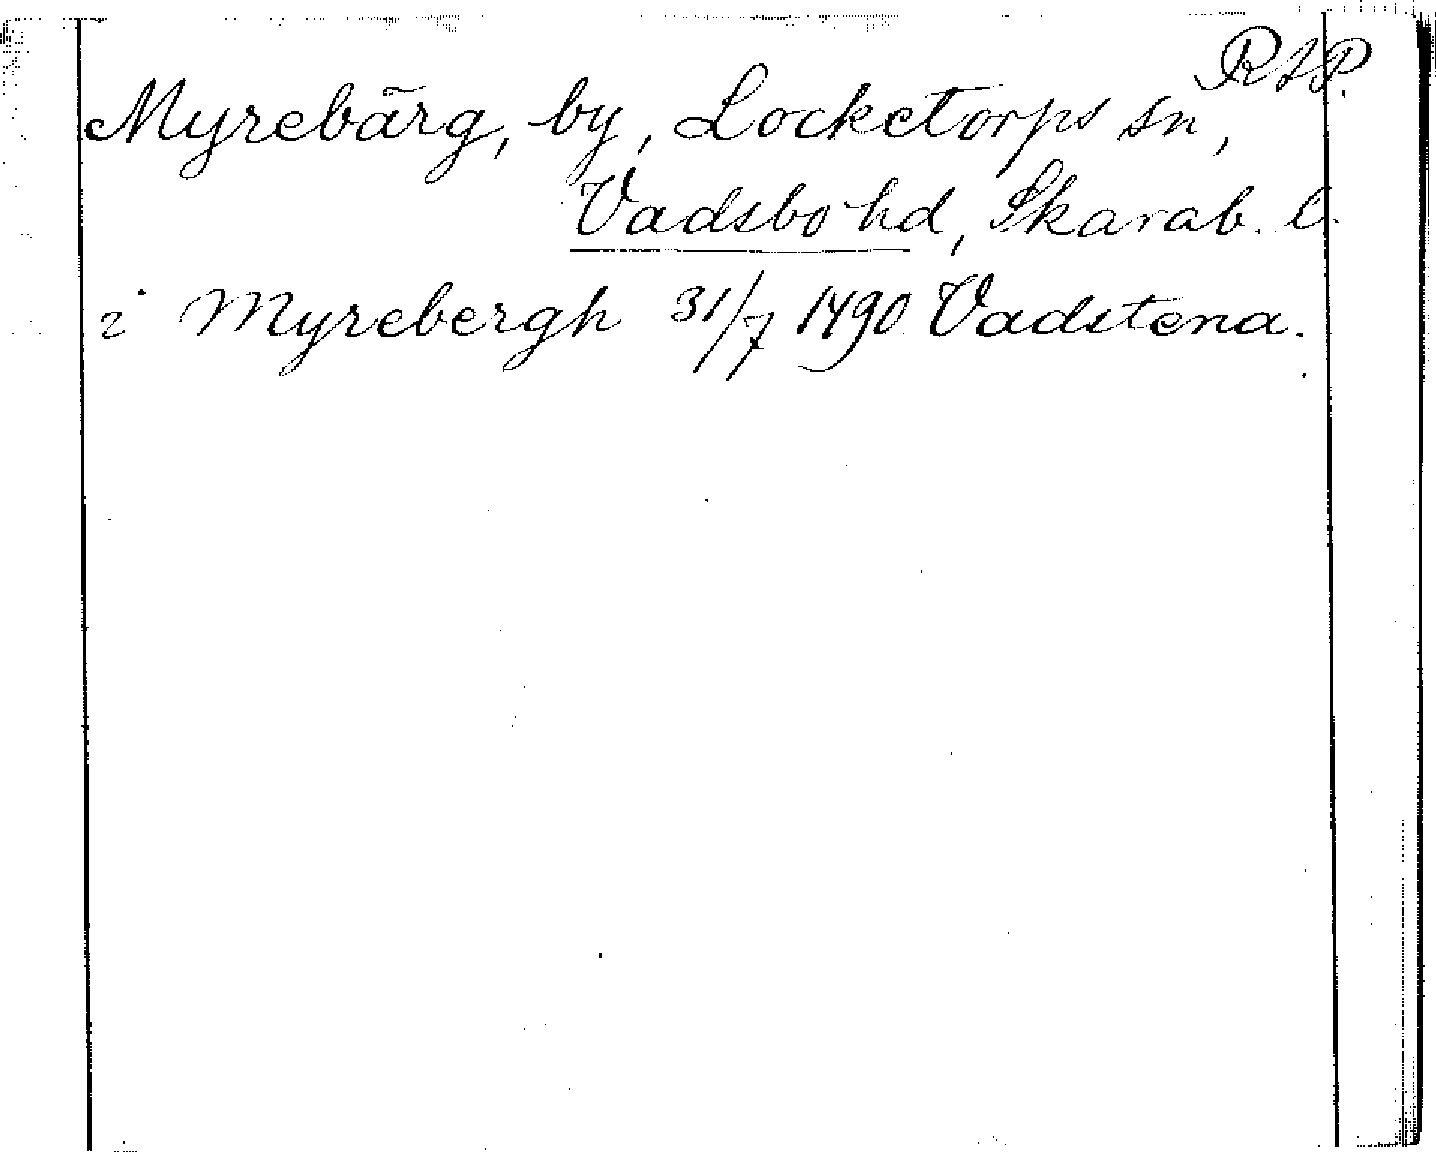 RAP.
Myrebärg, by, Locketorps sn,
Vadsbo hd, Skarab. l.
i Myrebergh 31/7 1490 Vadstena.